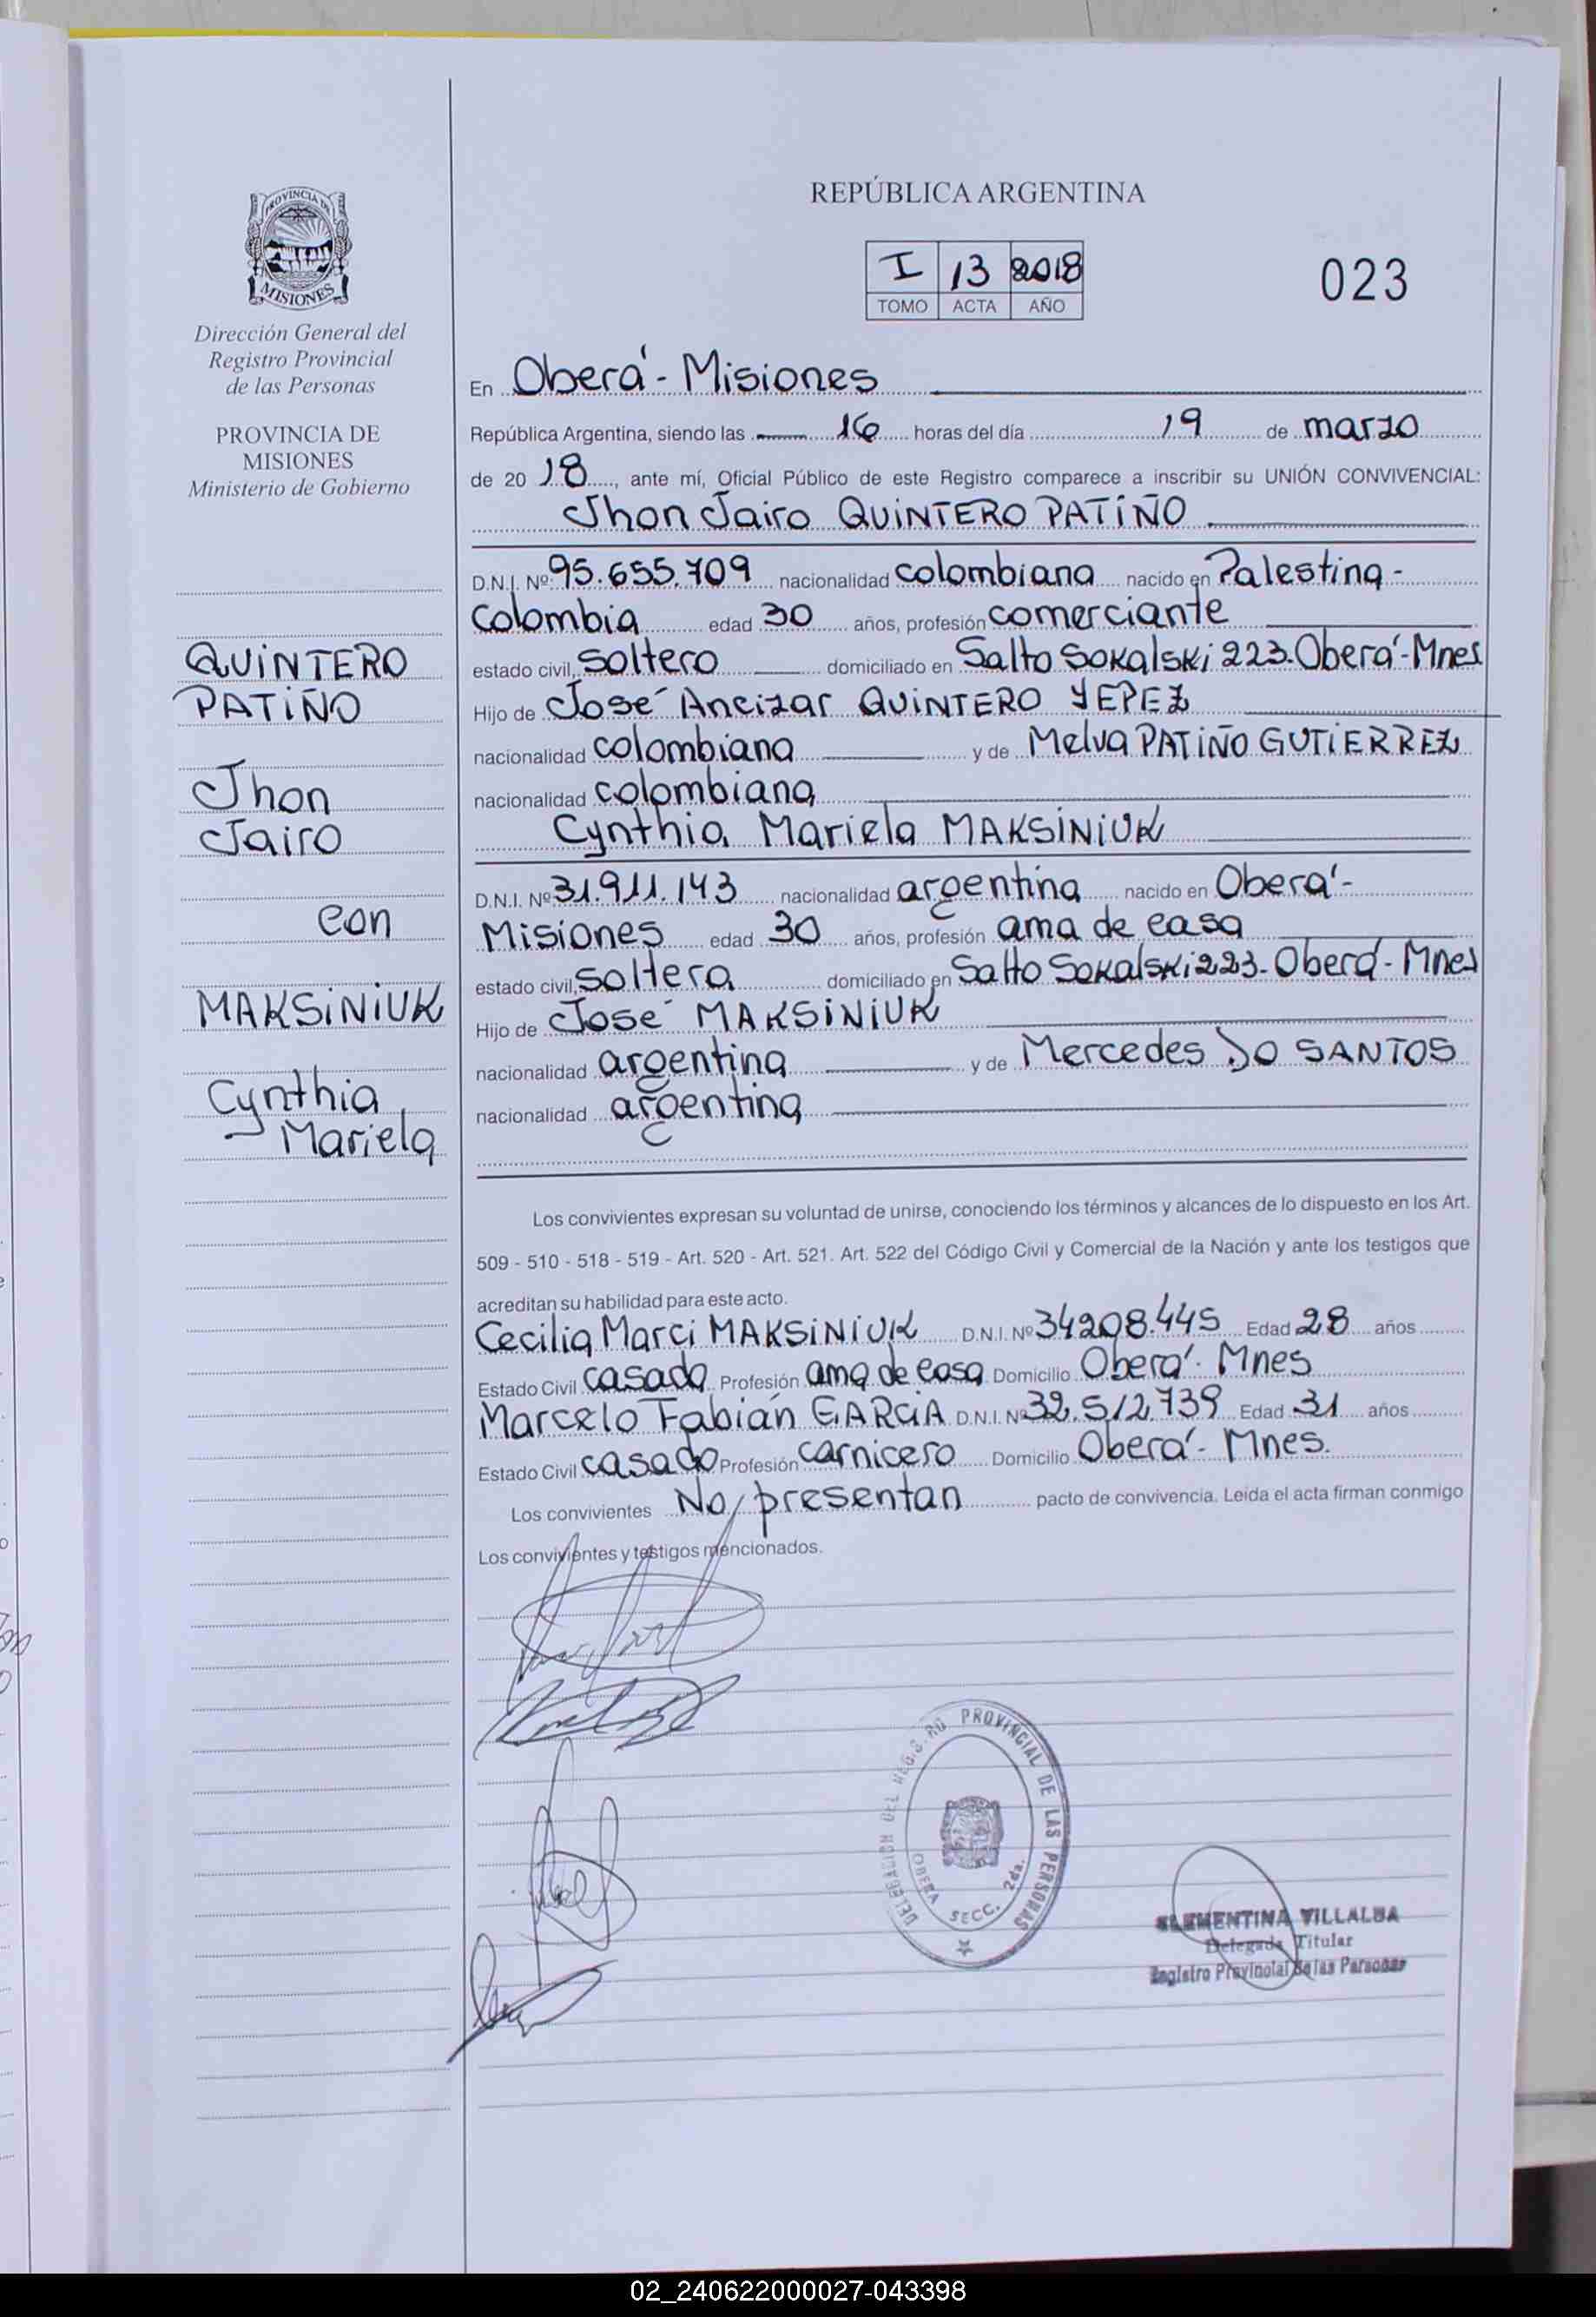 PROVINCIA DE
MISIONES
Dirección General del
Registro Provincial
de las Personas
PROVINCIA DE
MISIONES
Ministerio de Gobierno
QUINTERO
PATIÑO
Jhon
Jairo
con
MAKSINIUK
Cynthia
Mariela
REPÚBLICA ARGENTINA
I 13 2018
TOMO ACTA AÑO
023
En Oberá - Misiones
República Argentina, siendo las 16 horas del día 19 de marzo
de 20 18, ante mí, Oficial Público de este Registro comparece a inscribir su UNIÓN CONVIVENCIAL:
Jhon Jairo QUINTERO PATIÑO
D.N.I. Nº: 95.655.709 nacionalidad colombiana nacido en Palestina -
Colombia edad 30 años, profesión comerciante
estado civil, soltero domiciliado en Salto Sokalski 223. Oberá - Mnes
Hijo de José Ancizar QUINTERO YEPEZ
nacionalidad colombiana y de Melva PATIÑO GUTIERREZ
nacionalidad colombiana
Cynthia Mariela MAKSINIUK
D.N.I. Nº 31.911.143 nacionalidad argentina nacido en Oberá -
Misiones edad 30 años, profesión ama de casa
estado civil, soltera domiciliado en Salto Sokalski 223 - Oberá - Mnes
Hijo de José MAKSINIUK
nacionalidad argentina y de Mercedes DO SANTOS
nacionalidad argentina
Los convivientes expresan su voluntad de unirse, conociendo los términos y alcances de lo dispuesto en los Art.
509 - 510 - 518 - 519 - Art. 520 - Art. 521. Art. 522 del Código Civil y Comercial de la Nación y ante los testigos que
acreditan su habilidad para este acto.
Cecilia Marci MAKSINIUK D.N.I. Nº 34208.445 Edad 28 años
Estado Civil casada Profesión ama de casa Domicilio Oberá. Mnes
Marcelo Fabián GARCIA D.N.I. Nº 32.512.739 Edad 31 años
Estado Civil casado Profesión carnicero Domicilio Oberá - Mnes.
Los convivientes No presentan pacto de convivencia. Leida el acta firman conmigo
Los convivientes y testigos mencionados.
DELEGACION DEL REGISTRO PROVINCIAL DE LAS PERSONAS
OBERA SECC. 2da.
CLEMENTINA VILLALBA
Delegada Titular
Registro Provincial de las Personas
02_240622000027-043398